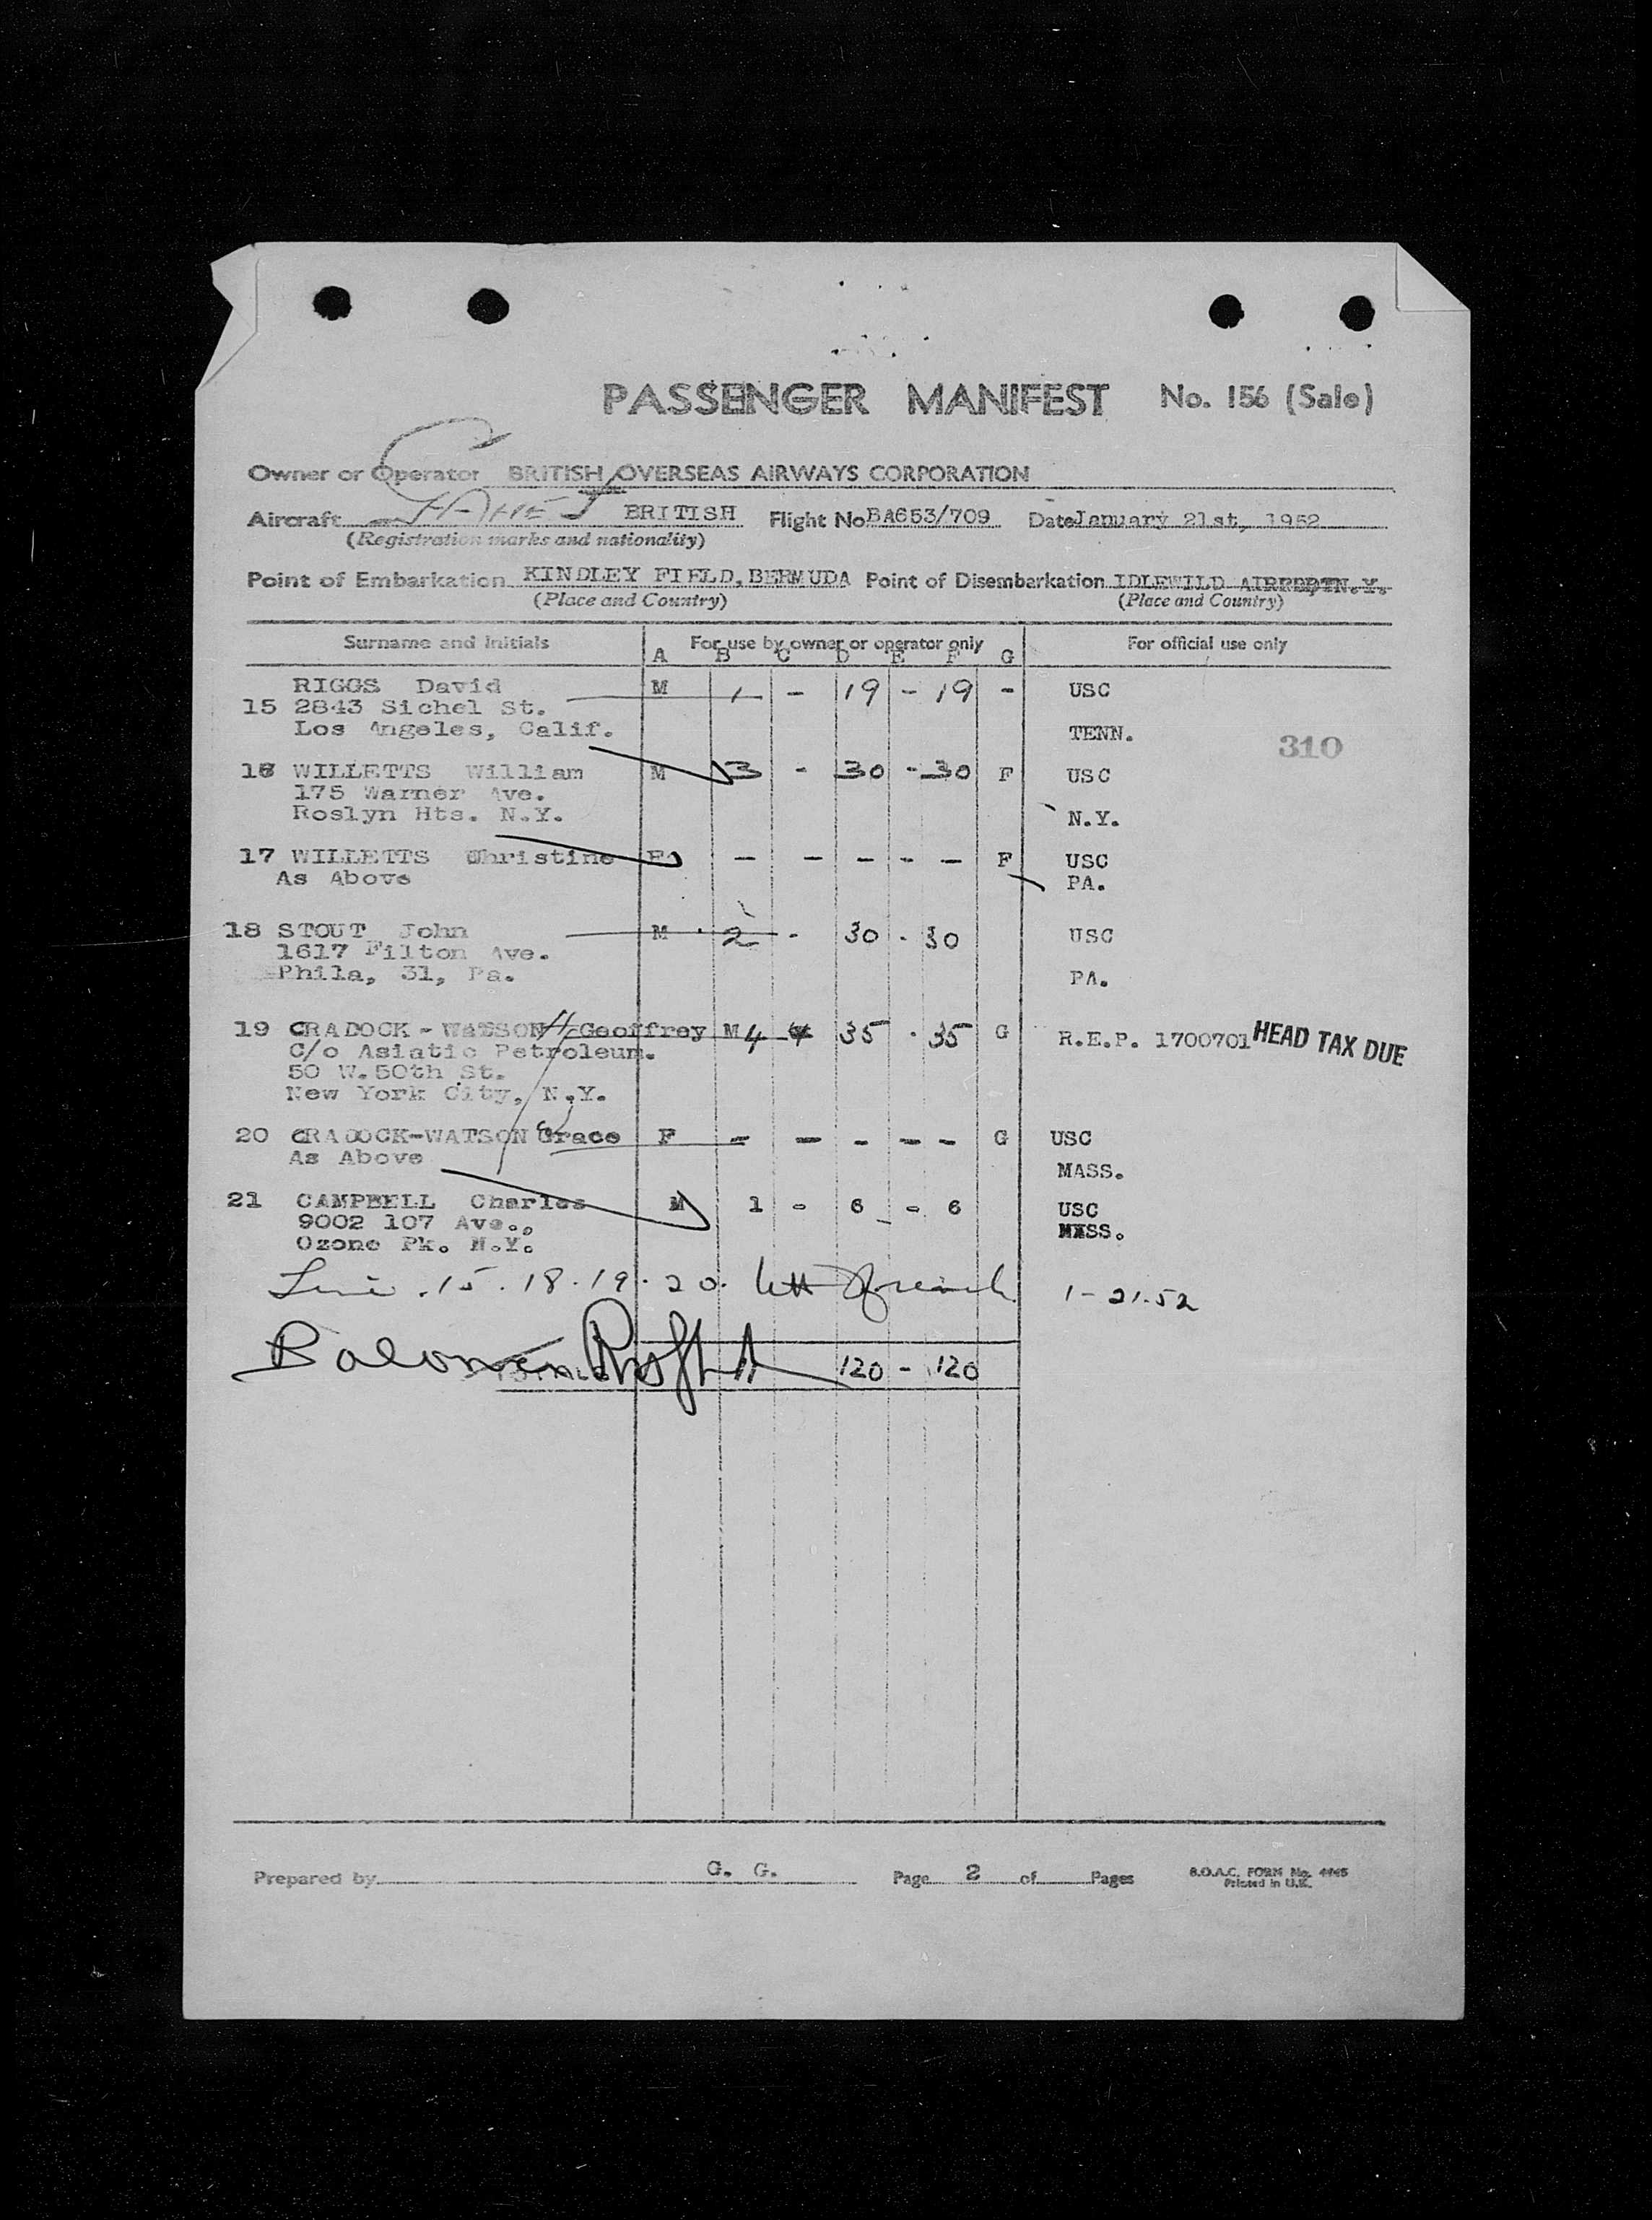 PASSENGER MANIFEST No. 156 (Sale)
Owner or Operator BRITISH OVERSEAS AIRWAYS CORPORATION
Aircraft BRITISH Flight No BA653/709 Date January 21st, 1952
(Registration marks and nationality)
Point of Embarkation KINDLEY FIELD, BERMUDA Point of Disembarkation IDLEWILD N.Y.
(Place and Country) (Place and Country)
Surname and Initials For use by owner or operator only For official use only
A B C D E F G
RIGGS David M 1 - 19 - 19 - USC
15 2843 Sichel St.
Los Angeles, Calif. TENN.
310
16 WILLETTS William M 3 - 30 - 30 F USC
175 Warner Ave.
Roslyn Hts. N.Y. N.Y.
17 WILLETTS Christine F - - - - - F USC
As Above PA.
18 STOUT John M 2 - 30 - 30 USC
1617 Filton Ave.
Phila, 31, Pa. PA.
19 CRADOCK - WATSON Geoffrey M 4 35 - 35 G R.E.P. 1700701 HEAD TAX DUE
C/o Asiatic Petroleum.
50 W. 50th St.
New York City, N.Y.
20 CRADOCK-WATSON Grace F - - - - - G USC
As Above MASS.
21 CAMPBELL Charles M 1 - 6 - 6 USC
9002 107 Ave., MASS.
Ozone Pk. N.Y.
15. 18. 19. 20. 1-21-52
120 - 120
Prepared by G. G. Page 2 of Pages B.O.A.C. FORM No.
Printed in U.K.